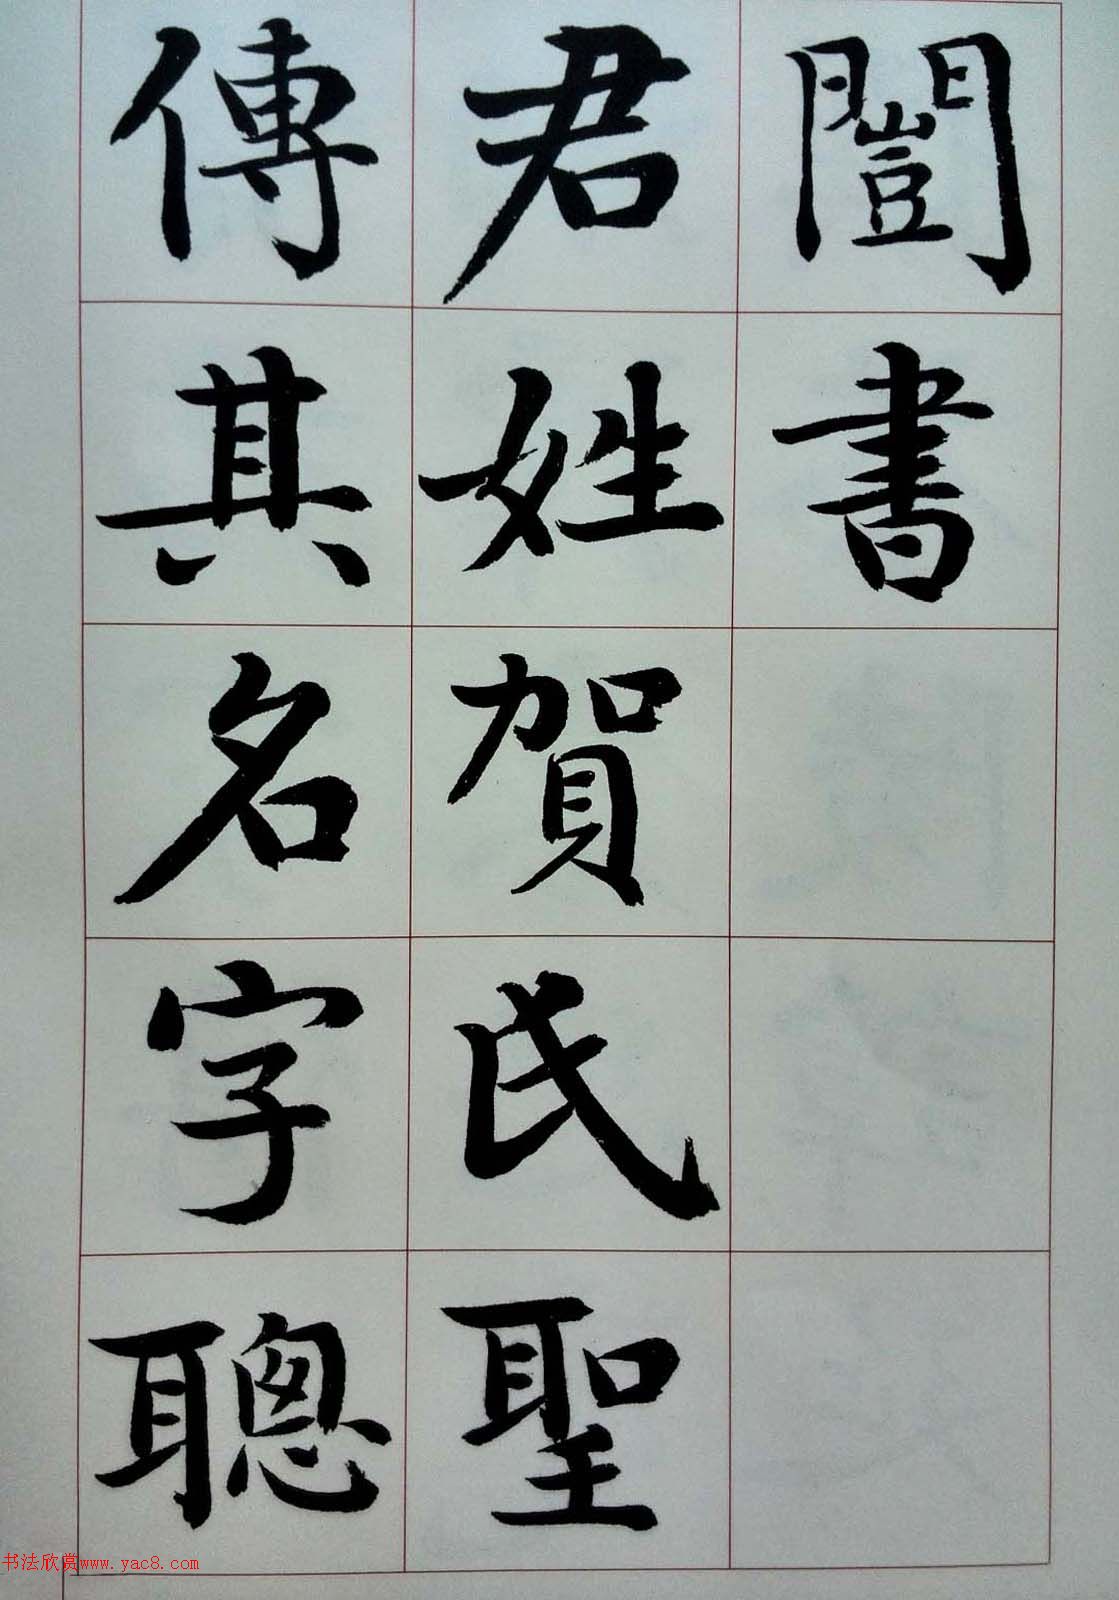 闓書
君姓賀氏聖
傳其名字聰
书法欣赏www.yac8.com